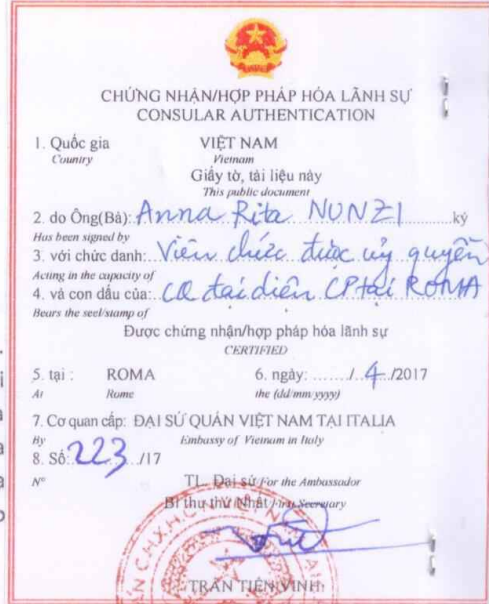 CHỨNG NHẬN/HỢP PHÁP HÓA LÃNH SỰ
CONSULAR AUTHENTICATION
1. Quốc gia VIỆT NAM
Country Vietnam
Giấy tờ, tài liệu này
This public document
2. do Ông(Bà): Anna Rita NUNZI ký
Has been signed by
3. với chức danh: Viên chức được uỷ quyền
Acting in the capacity of
4. và con dấu của: CQ đại diện CP tại ROMA
Bears the seel/stamp of
Được chứng nhận/hợp pháp hóa lãnh sự
CERTIFIED
5. tại : ROMA 6. ngày: ....../..4../2017
At Rome the (dd/mm/yyyy)
7. Cơ quan cấp: ĐẠI SỨ QUÁN VIỆT NAM TẠI ITALIA
By Embassy of Vietnam in Italy
8. Số: 223 /17
N° TL. Đại sứ For the Ambassador
Bí thư thứ Nhất First Secretary
TRẦN TIẾN VINH